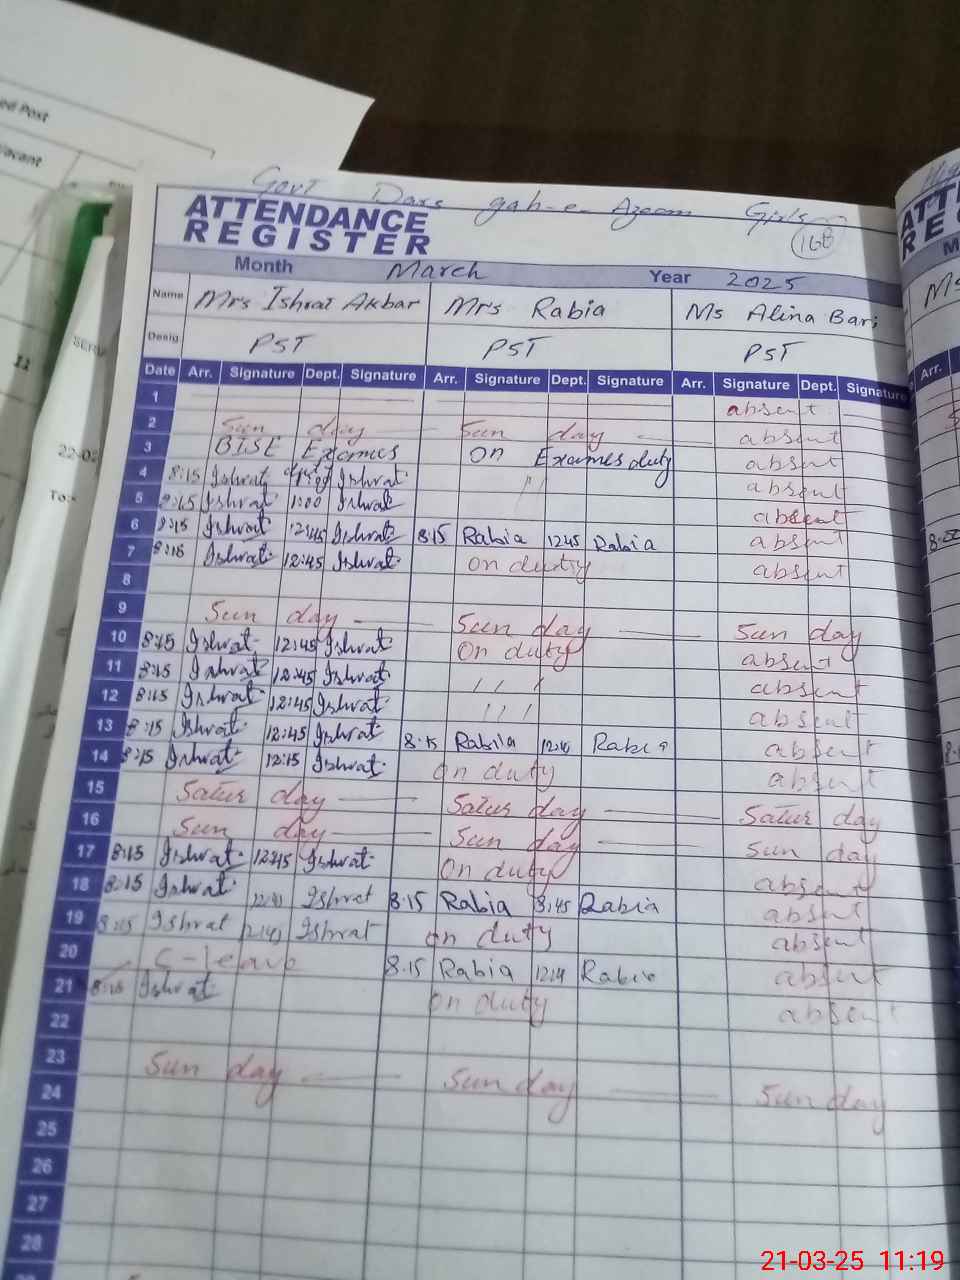 ed Post
Vacant
Govt Dars gah-e-Azeem Girls
168
ATTENDANCE
REGISTER
Month March Year 2025
Name Mrs Ishrat Akbar Mrs Rabia Ms Alina Bari
Desig. PST PST PST
Date Arr. Signature Dept. Signature Arr. Signature Dept. Signature Arr. Signature Dept. Signature
1 absent
2 Sun day Sun day absent
3 BISE Exames On Exames duty absent
4 8:15 Ishrat Ishrat absent
5 8:15 Ishrat 1:00 Ishrat absent
6 8:15 Ishrat 12:45 Ishrat 8:15 Rabia 1245 Rabia absent
7 8:15 Ishrat 12:45 Ishrat On duty absent
8
9 Sun day Sun day Sun day
10 8:15 Ishrat 12:45 Ishrat On duty absent
11 8:15 Ishrat 12:45 Ishrat absent
12 8:15 Ishrat 12:45 Ishrat absent
13 8:15 Ishrat 12:45 Ishrat 8:15 Rabia Rabia absent
14 8:15 Ishrat 12:15 Ishrat On duty absent
15 Satur day Satur day Satur day
16 Sun day Sun day Sun day
17 8:15 Ishrat 12:45 Ishrat On duty absent
18 8:15 Ishrat Ishrat 8:15 Rabia Rabia absent
19 8:15 Ishrat Ishrat On duty absent
20 C-leave 8.15 Rabia Rabia absent
21 8:15 Ishrat On duty absent
22
23 Sun day Sun day Sun day
24
25
26
27
28
SERV
11
22-02
To:-
Arr.
21-03-25 11:19